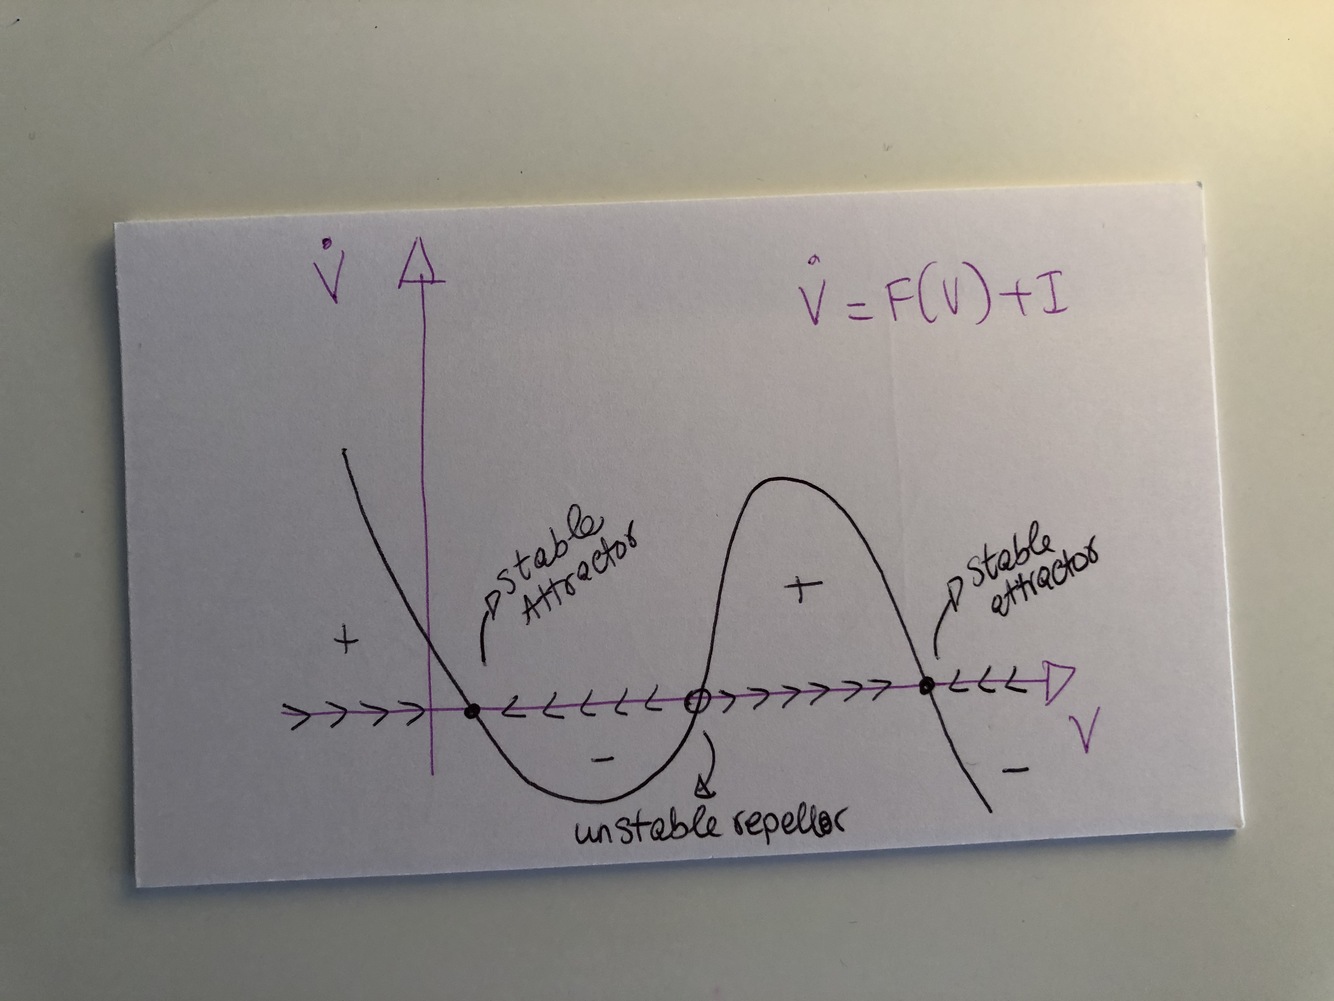 V̇
V̇ = F(V) + I
stable
Attractor
stable
attractor
+
+
V
−
−
unstable repellor